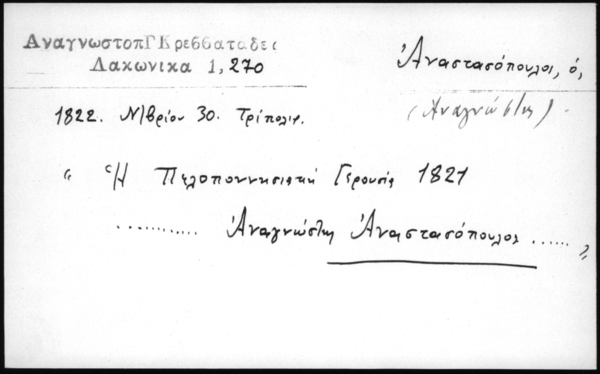 ΑναγνωστοπΓΚρεββαταδες
Λακωνικα 1,270
Ἀναστασόπουλος, ὁ,
(Ἀναγνώστης)
1822. Ν/βρίου 30. Τρίπολις.
“ Ἡ Πελοποννησιακή Γερουσία 1821
........... Ἀναγνώστης Ἀναστασόπουλος ...... „